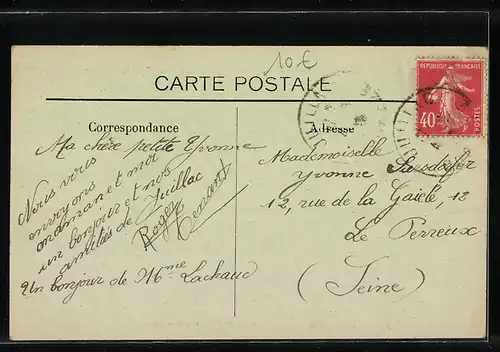 10€
CARTE POSTALE
Correspondance
Adresse
REPUBLIQUE FRANÇAISE
40
POSTES
JUILLAC
JUILLAC
Ma chère petite Yvonne
Nous vous
envoyons
maman et moi
un bonjour et nos
amitiés de Juillac
Roger
Un bonjour de Mme Lachaud
Mademoiselle
Yvonne
12, rue de la Gaiele, 12
Le Perreux
(Seine)